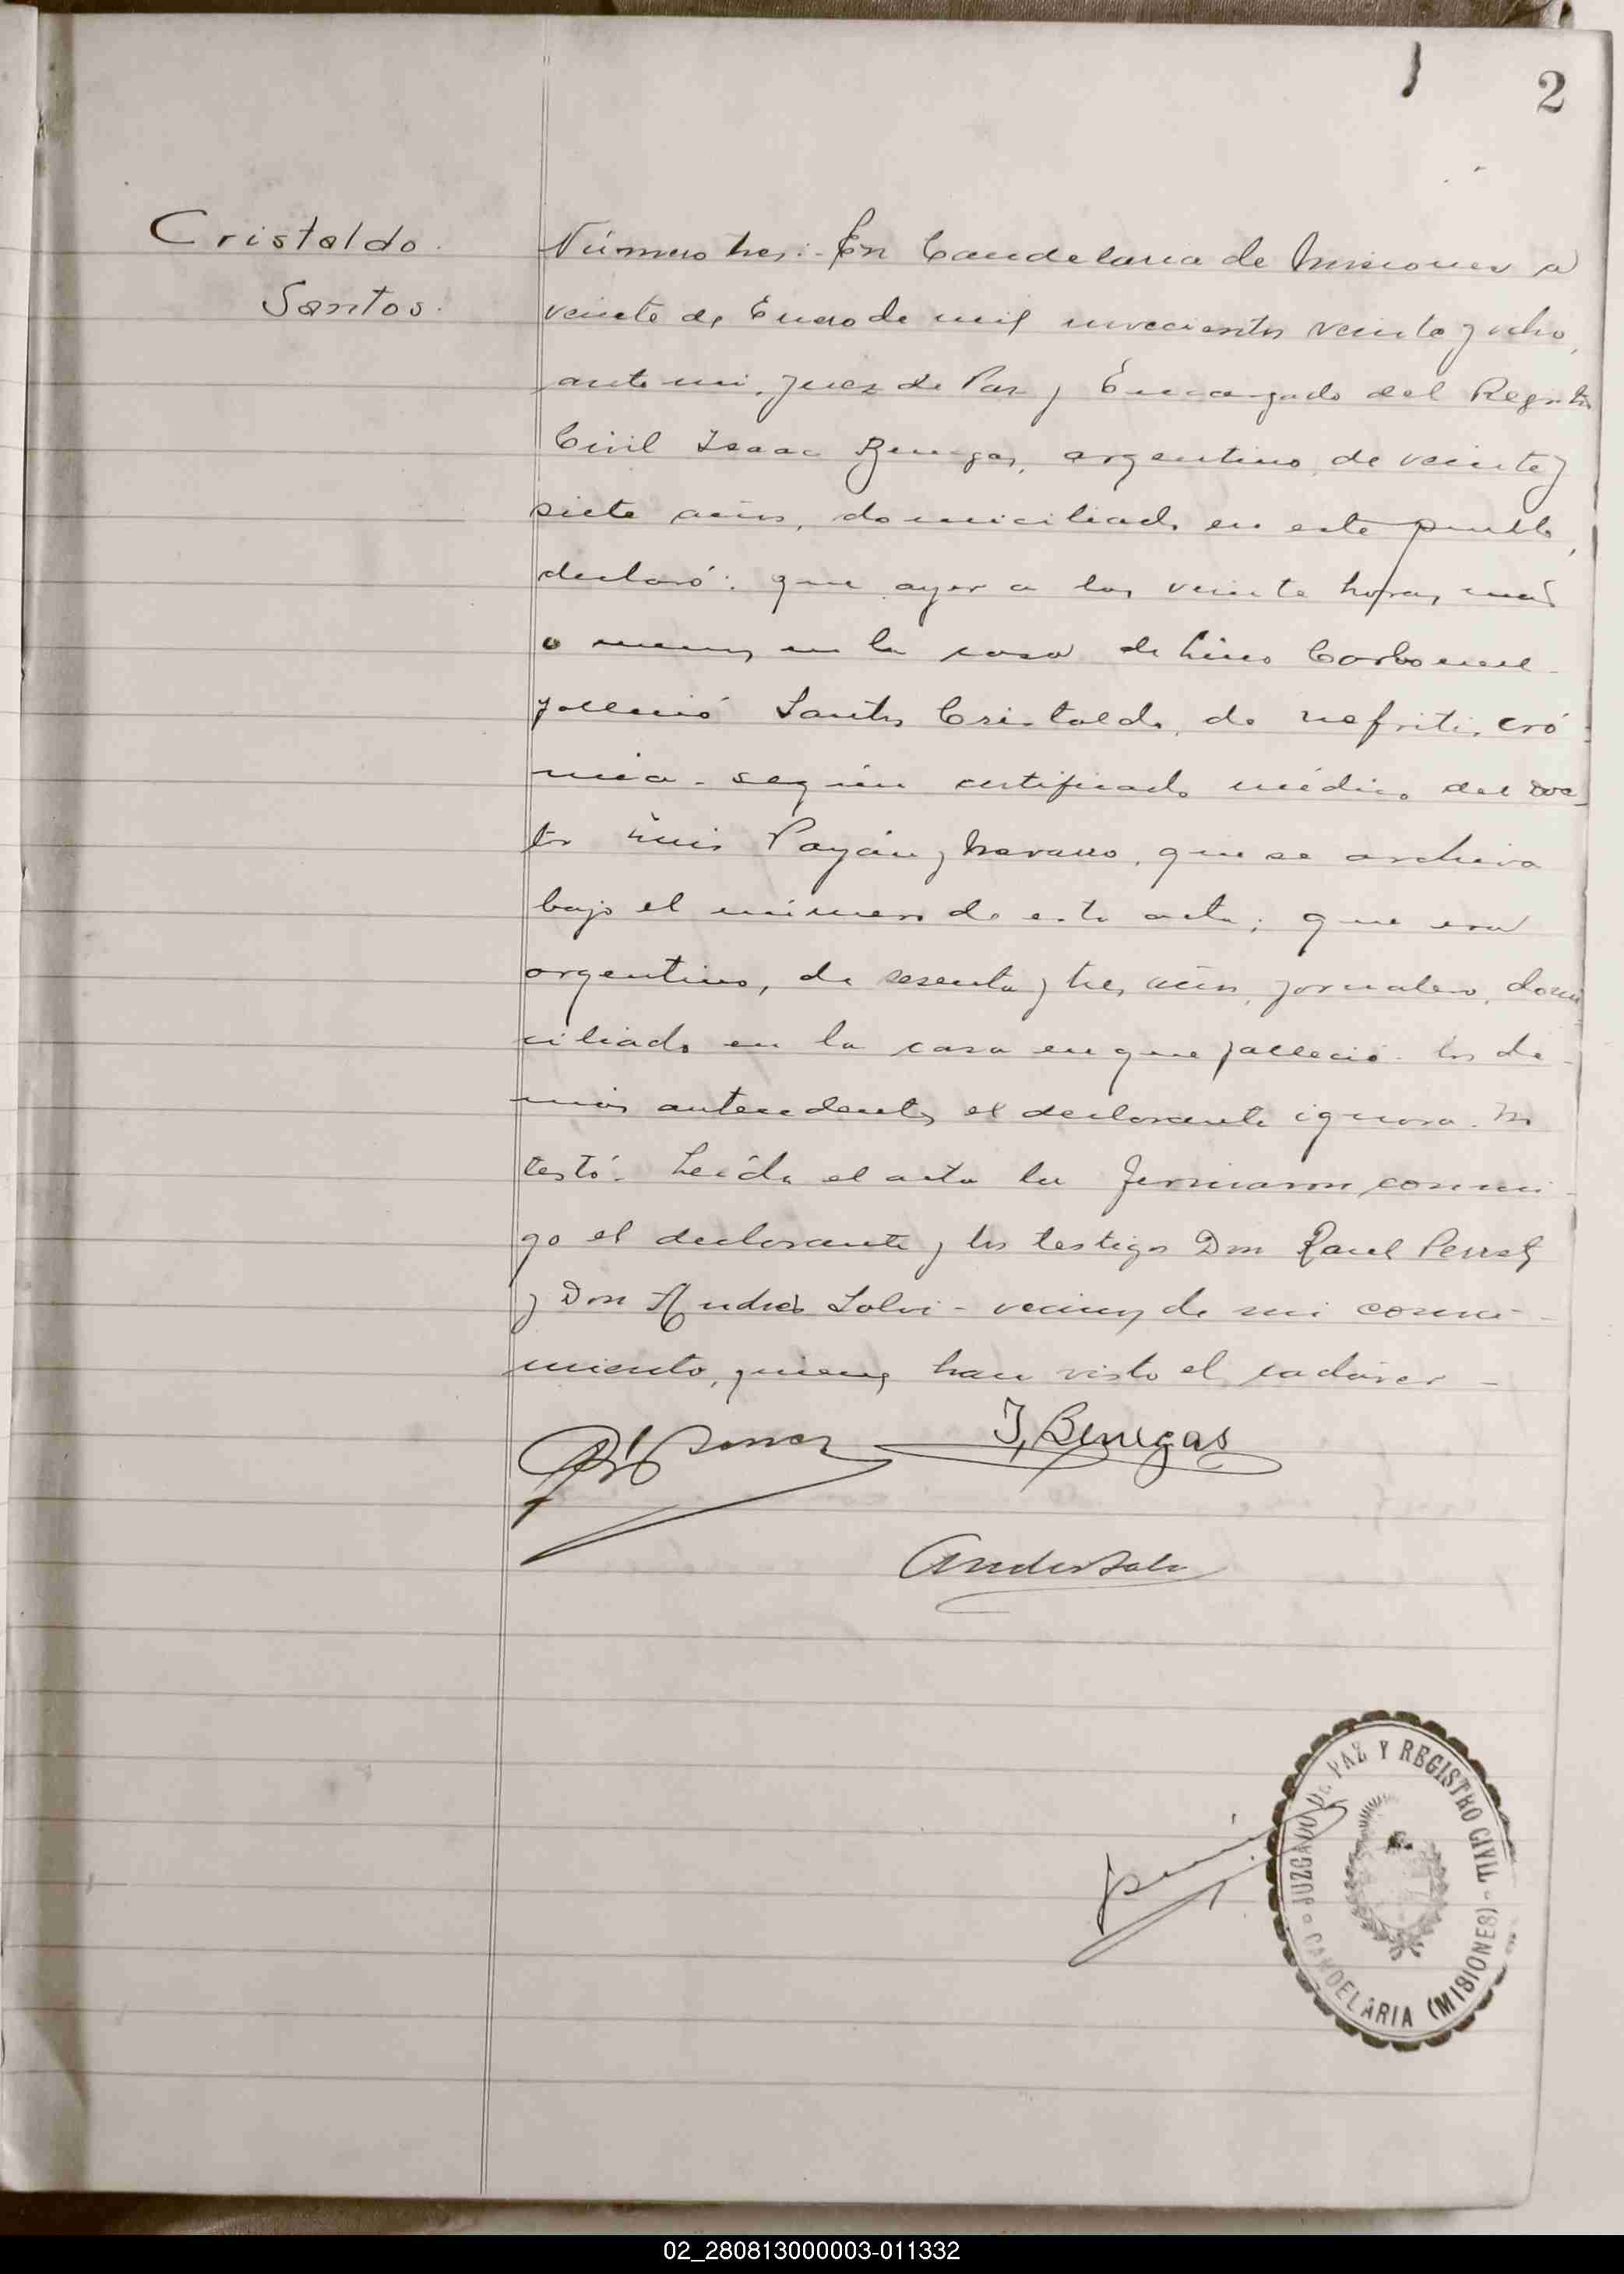 2
Cristaldo
Santos.
Número tres:- En Candelaria de Misiones a
veinte de Enero de mil novecientos veinte y ocho,
ante mi, Juez de Paz y Encargado del Registro
Civil Isaac Benegas, argentino, de veinte y
siete años, domiciliado en este pueblo,
declaró: que ayer a las veinte horas, más
o menos en la casa de Lino Carbonell
falleció Santos Cristaldo, de nefritis cró-
nica - según certificado médico del Doc-
tor Luis Payán y Navarro, que se archiva
bajo el número de esta acta; que era
argentino, de sesenta y tres años, jornalero, domi-
ciliado en la casa en que falleció. los de-
más antecedentes el declarante ignora. No
testó. Leída el acta la firmaron conmi-
go el declarante y los testigos Don Raul Perret
y Don Andrés Solvi - vecinos de mi conoci-
miento, quienes han visto el cadáver -
I, Benegas
JUZGADO DE PAZ Y REGISTRO CIVIL - CANDELARIA (MISIONES) -
02_280813000003-011332